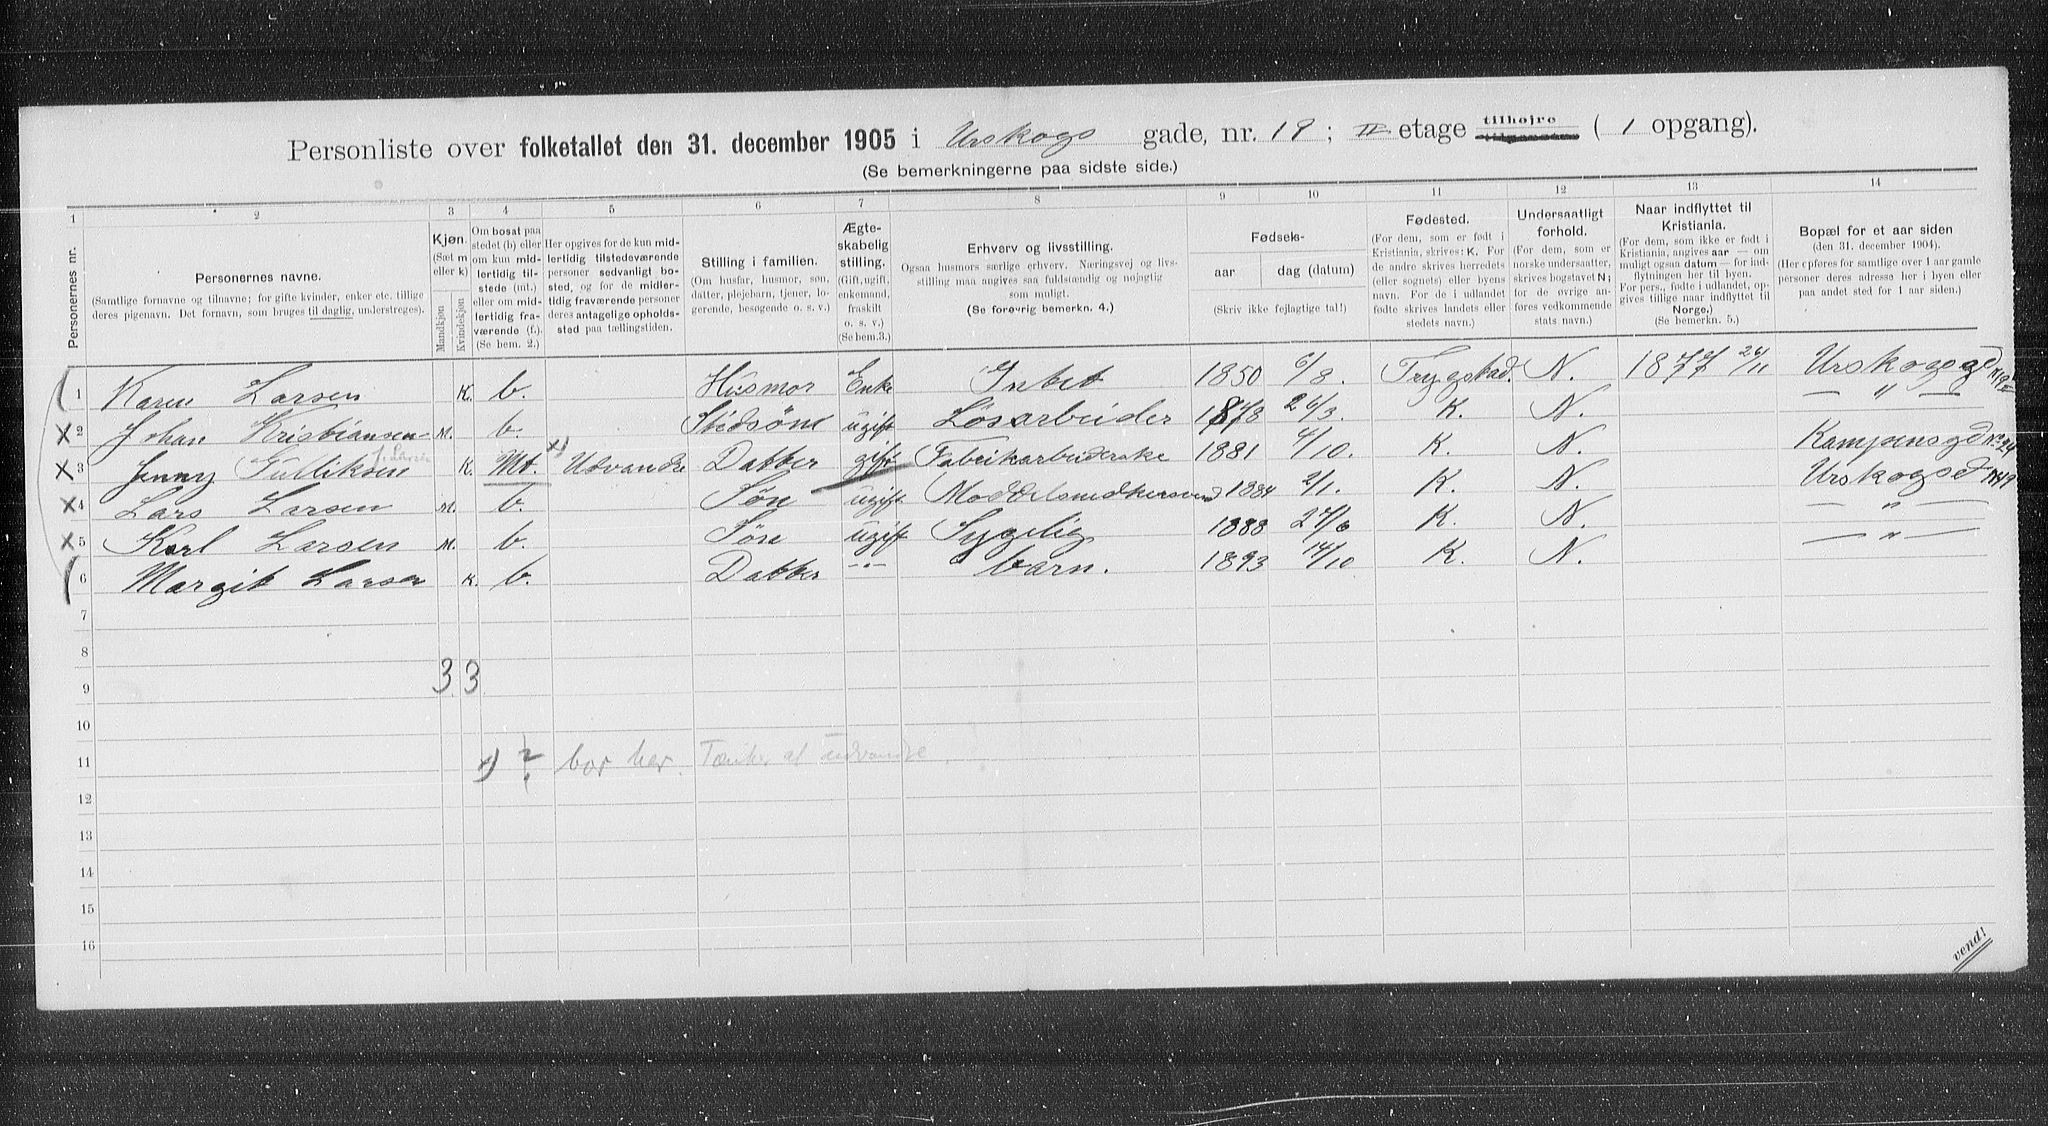 Personliste over folketallet den 31. december 1905 i Urskogs gade, nr. 19; II etage tilhøjre ( 1 opgang).
(Se bemerkningerne paa sidste side.)
1 2 3 4 5 6 7 8 9 10 11 12 13 14
Personernes nr.
Personernes navne.
(Samtlige fornavne og tilnavne; for gifte kvinder, enker etc. tillige
deres pigenavn. Det fornavn, som bruges til daglig, understreges).
Kjøn.
(Sæt m
eller k)
Mandkjøn
Kvindekjøn
Om bosat paa
stedet (b) eller
om kun mid-
lertidig til-
stede (mt.)
eller om mid-
lertidig fra-
værende (f.).
(Se bem. 2.)
Her opgives for de kun mid-
lertidig tilstedeværende
personer sedvanligt bo-
sted, og for de midler-
tidig fraværende personer
deres antagelige opholds-
sted paa tællingstiden.
Stilling i familien.
(Om husfar, husmor, søn,
datter, plejebarn, tjener, lo-
gerende, besøgende o. s. v.)
Ægte-
skabelig
stilling.
(Gift, ugift,
enkemand,
fraskilt
o. s. v.)
(Se bem.3.)
Erhverv og livsstilling.
Ogsaa husmors særlige erhverv. Næringsvej og livs-
stilling maa angives saa fuldstændig og nøjagtig
som muligt.
(Se forøvrig bemerkn. 4.)
Fødsels-
aar dag (datum)
(Skriv ikke fejlagtige tal!)
Fødested.
(For dem, som er født i
Kristiania, skrives: K. For
de andre skrives herredets
(eller sognets) eller byens
navn. For de i udlandet
fødte skrives landets eller
stedets navn.)
Undersaatligt
forhold.
(For dem, som er
norske undersaatter,
skrives bogstavet N;
for de øvrige an-
føres vedkommende
stats navn.)
Naar indflyttet til
Kristiania.
(For dem, som ikke er født i
Kristiania, angives aar — om
muligt ogsaa datum — for ind-
flytningen her til byen.
For pers., fødte i udlandet, op-
gives tillige naar indflyttet til
Norge.)
(Se bemerkn. 5.)
Bopæl for et aar siden
(den 31. december 1904).
(Her opføres for samtlige over 1 aar gamle
personer deres adresse her i byen eller
paa andet sted for 1 aar siden.)
1 Karen Larsen K. b. Husmor Enke Intet 1850 6/8. Trygstad. N. 1877 24/11 Urskoggd
2 Johan Kristiansen M. b. Stedsøn ugift Løsarbeider 1878 26/3. K. N. — " —
3 Jenny Gulliksen f. Larsen K. Mt. x) Udvandre Datter gift Fabrikarbeiderske 1881 4/10. K. N. Kampensgd No 24
4 Lars Larsen M. b. Søn ugift Møbelsnedkersvend 1884 2/1. K. N. Urskogsgd No 19
5 Karl Larsen M. b. Søn ugift Sygelig 1888 27/6 K. N. — " —
6 Margit Larsen K. b. Datter — barn. 1893 14/10 K. N. — " —
7
8
3 3
9
10
x) ? bor her. Tænker at udvandre.
11
12
13
14
15
16
vend!